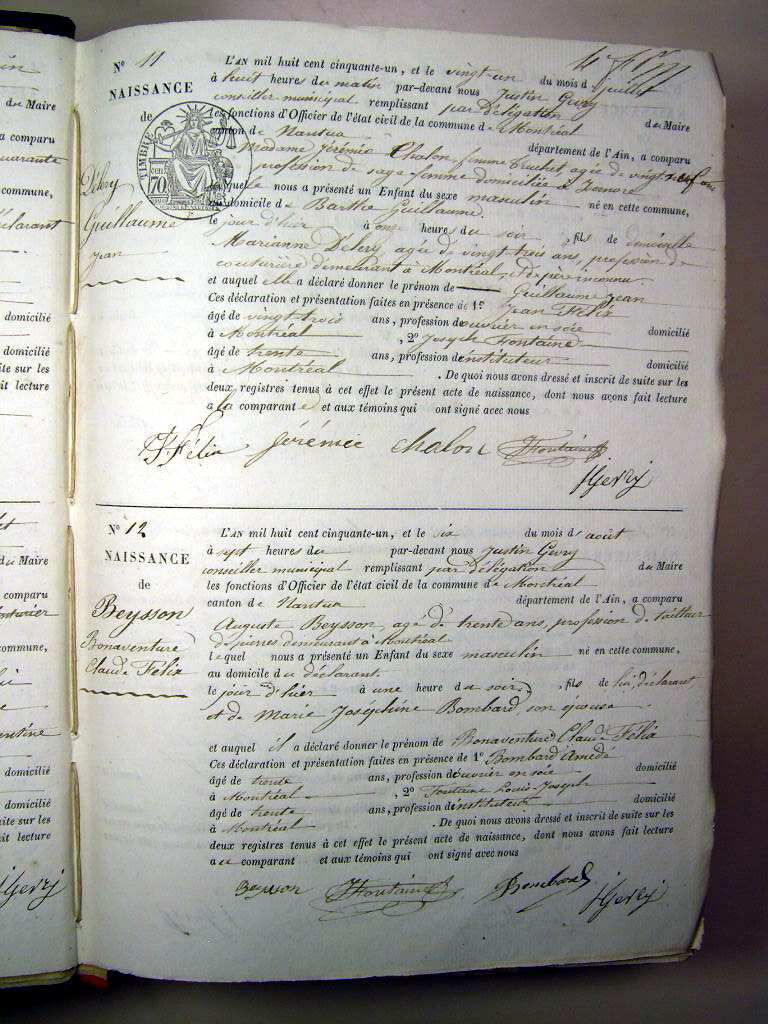 du Maire
a comparu
commune,
déclarant
domicilié
domicilié
suite sur les
fait lecture
N° 11
NAISSANCE
de
Délery
Guillaume
Jean
TIMBRE
70
L'AN mil huit cent cinquante-un, et le vingt-un du mois d juillet
à huit heures du matin par-devant nous Justin Gevry
conseiller municipal remplissant par délégation du Maire
les fonctions d'Officier de l'état civil de la commune de Montréal
canton de Nantua département de l'Ain, a comparu
Madame Jérémie Chalon femme agée de vingt
profession de sage femme domiciliée à
laquelle nous a présenté un Enfant du sexe masculin né en cette commune,
au domicile de Barthe Guillaume.
le jour d'hier à onze heures du soir, fils de demoiselle
Marianne Délery agée de vingt trois ans, profession de
couturière demeurant à Montréal, et de père inconnu.
et auquel elle a déclaré donner le prénom de Guillaume Jean
Ces déclaration et présentation faites en présence de 1° Jean Félix
âgé de vingt trois ans, profession d'ouvrier en soie domicilié
à Montréal, 2° Joseph Fontaine
âgé de trente ans, profession d'instituteur domicilié
à Montréal. De quoi nous avons dressé et inscrit de suite sur les
deux registres tenus à cet effet le présent acte de naissance, dont nous avons fait lecture
à la comparante et aux témoins qui ont signé avec nous
J Félix Jérémie Chalon JFontaine
JGevry
N° 12
NAISSANCE
de
Beysson
Bonaventure
Claude Félix
L'AN mil huit cent cinquante-un, et le six du mois d'août
à sept heures du par-devant nous Justin Gevry
conseiller municipal remplissant par délégation du Maire
les fonctions d'Officier de l'état civil de la commune de Montréal
canton de Nantua département de l'Ain, a comparu
Auguste Beysson, agé de trente ans, profession de tailleur
de pierres demeurant à Montréal
lequel nous a présenté un Enfant du sexe masculin né en cette commune,
au domicile du déclarant.
le jour d'hier à une heure du soir, fils de lui, déclarant
et de Marie Joséphine Bombard son épouse
et auquel il a déclaré donner le prénom de Bonaventure Claude Félix
Ces déclaration et présentation faites en présence de 1° Bombard Amédé
âgé de trente ans, profession d'ouvrier en soie domicilié
à Montréal, 2° Fontaine Louis Joseph
âgé de trente ans, profession d'instituteur domicilié
à Montréal. De quoi nous avons dressé et inscrit de suite sur les
deux registres tenus à cet effet le présent acte de naissance, dont nous avons fait lecture
au comparant et aux témoins qui ont signé avec nous
Beysson JFontaine Bombard JGevry